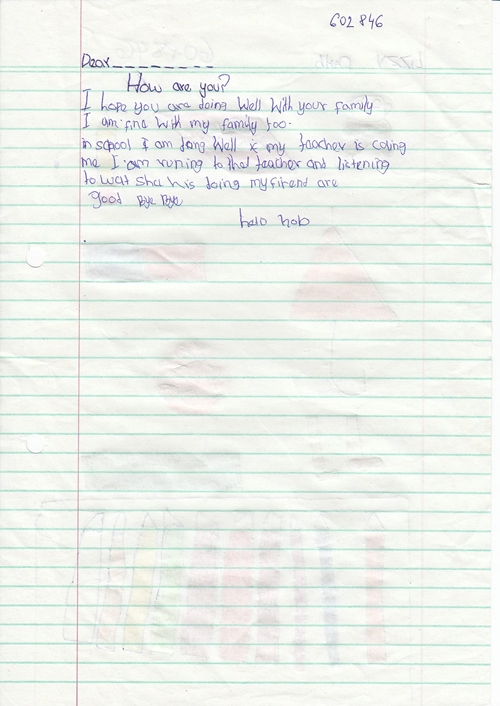 602846
Dear________
How are you?
I hope you are doing well with your family
I am fine with my family too.
in scpool I am dong well & my teacher is coling
me I am runing to thet teacher and listening
to wat sha his doing my firend are
good Bye Bye